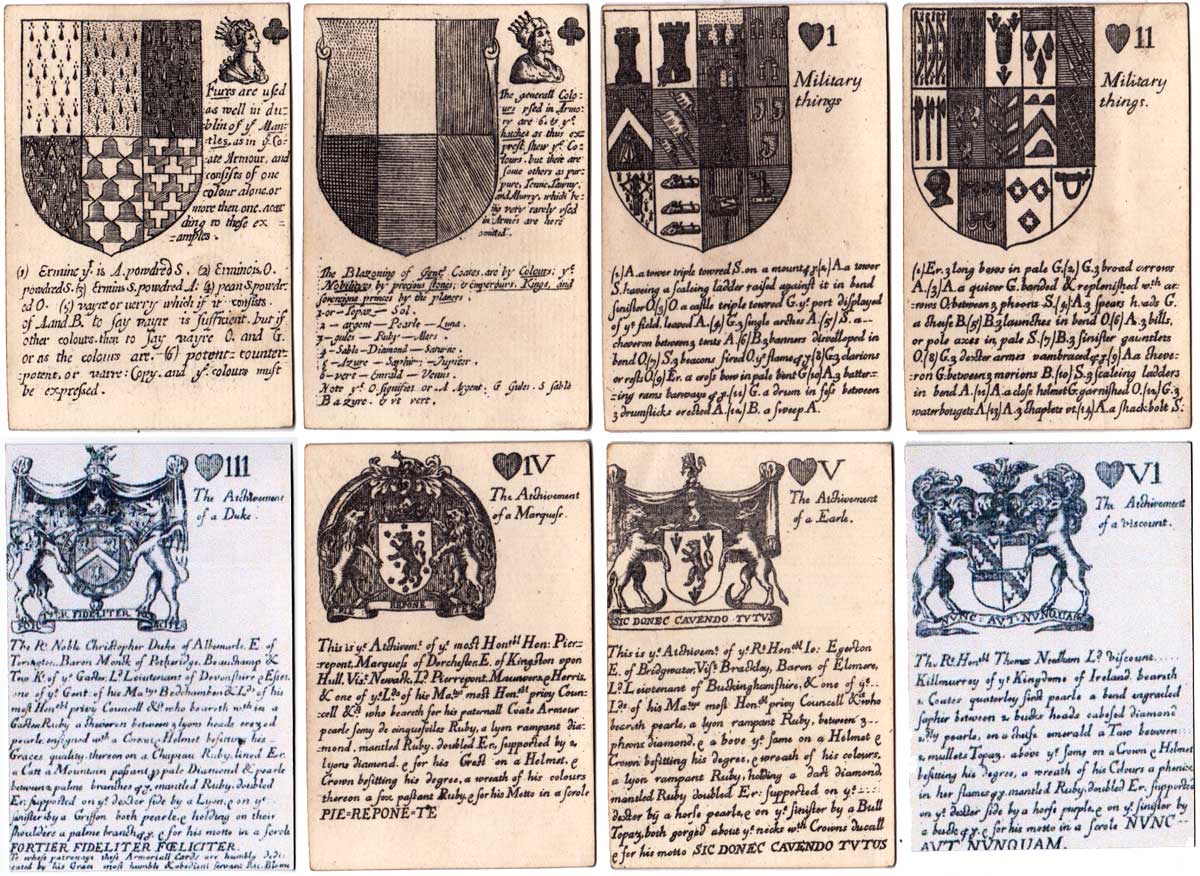 Furrs are used
as well in du=
blin of yᵉ Man=
tles, as in yᵉ Co=
ate Armour, and
consists of one
colour alone, or
more then one. accor
ding to these ex=
=amples.
(1) Ermine yᵗ is A. powdred S. (2) Erminois, O.
powdred S. (3) Ermins S. powdred A: (4) pean S. powdr=
ed O. (5) vayre or verry which if it consists
of A and B. to say vayre is sufficient. but if
other colours. then to say vayre O. and G.
or as the colours are. (6) potent-counter-
=potent, or varre-Copy. and yᵉ colours must
be expressed.
The generall Colo=
urs used in Armo=
ry are 6. & yᵉ
hatches as thus ex
prest shew yᵉ Co=
lours. but there are
some others as pur=
pure, Tenne, Tawny,
and Murry, which be=
ing very rarely used
in Armes are here
omitted.
The Blazoning of Gentˢ Coates are by Colours; yᵉ
Nobility by precious stones; & emperours, Kings, and
soveraigne princes by the planets.
1-or-Topaz-Sol.
2-argent-Pearle-Luna.
3-gules-Ruby-Mars.
4-Sable-Diamond-Saturne.
5-Azure-Saphir-Jupiter.
6-vert-Emrald-Venus.
Note yᵗ O. signifies or A Argent. G Gules. S sable
B azure. & vt vert.
I
Military
things
(1) A. a tower triple towred S. on a mount (2) A. a tower
S. having a scaleing ladder raised against it in bend
sinister O. (3) O. a castle triple towred G. yᵉ port displayed
of yᵉ field, leaved A. (4) G. 3 single arches A (5) S. a
cheveron between 3 tents A (6) B. 3 banners disvelloped in
bend O. (7) S. 3 beacons fired O. yᵉ flame (8) G. 3 clarions
or rests O. (9) Er. a cross bow in pale bent G (10) A. 3 batter=
ing rams barways (11) G. a drum in fess between
3 drumsticks erected A. (12) B. a sweep A.
II
Military
things.
(1) Er. 3 long bows in pale G. (2) G. 3 broad arrows
A. (3) A. a quiver G. banded & replenished wᵗʰ ar=
rows O. between 3 pheons S. (4) A. 3 spears heads G.
a cheife B. (5) B. 3 launches in bend O. (6) A. 3 bills,
or pole axes in pale S. (7) B. 3 sinister gauntlets
O. (8) G. 3 dexter armes vambraced (9) A. a cheve=
ron G. between 3 morions B. (10) S. 3 scaleing ladders
in bend A. (11) A. a close helmet G. garnished O. (12) G. 3
waterbougets A. (13) A. 3 chaplets vt. (14) A. a shackbolt S.
III
The Atchivement
of a Duke.
FORTIER FIDELITER FŒLICITER
The Rᵗ Noble Christopher Duke of Albemarle, E. of
Torington, Baron Monk of Potheridge, Beauchamp &
Tes, Kᵗ of yᵉ Garter, Lᵈ Lieutenant of Devonshire & Essex
one of yᵉ Gent. of his Maᵗⁱᵉˢ Bedchamber & Lᵈˢ of his
most Honᵇˡᵉ privy Councell &c. who beareth with in a
Garter Ruby a cheveron between 3 lyons heads erezed
pearle, ensigned with a Coronet, Helmet befitting his
Graces quality, thereon on a Chapeau Ruby, lined Er.
a Catt a Mountain passant p pale Diamond & pearle
between 2 palme branches mantled Ruby doubled
Er: supported on yᵉ dexter side by a Lyon, & on yᵉ
sinister by a Griffon both pearle, & holding on their
shoulders a palme branch & for his motto in a scrole
FORTIER FIDELITER FŒLICITER.
To whose patronage these Armoriall Cards are humbly dedi=
cated by his Graces most humble & obedient servant Ric. Blome
IV
The Atchivement
of a Marquese.
PIE REPONE TE
This is yᵉ Atchivemᵗ of yᵉ most Honᵇˡᵉ Hen: Pier=
repont, Marquess of Dorchester, E. of Kingston upon
Hull, Visᵗ Newark, Lᵈ Pierrepont, Maunvers, & Herris,
& one of yᵉ Lᵈˢ of his Maᵗⁱᵉˢ most Honᵇˡᵉ privy Coun=
cell &c. who beareth for his paternall Coate Armour
pearle semy de cinquefoiles Ruby, a lyon rampant dia=
mond, mantled Ruby, doubled Er. supported by 2
lyons diamond, & for his Crest on a Helmet, &
Crown befitting his degree, a wreath of his colours
thereon a fox passant Ruby, & for his Motto in a scrole
PIE-REPONE-TE
V
The Atchivement
of a Earle.
SIC DONEC CAVENDO TVTUS
This is yᵉ Atchivemᵗ of yᵉ Rᵗ Honᵇˡᵉ Io: Egerton
E. of Bridgwater, Visᵗ Brackley, Baron of Elmere,
Lᵈ Leiutenant of Buckinghmshire, & one of yᵉ
Lᵈˢ of his Maᵗⁱᵉˢ most Honᵇˡᵉ privy Councell &c. who
beareth pearle, a lyon rampant Ruby, between 3
pheons diamond, & above yᵉ same on a Helmet &
Crown befitting his degree, & wreath of his colours,
a lyon rampant Ruby, holding a dart diamond,
mantled Ruby doubled Er: supported on yᵉ
dexter by a horse pearle, & on yᵉ sinister by a Bull
Topaz, both gorged about yᵉ necks wᵗʰ Crowns ducall
& for his motto SIC DONEC CAVENDO TVTUS
VI
The Atchivement
of a Viscount.
NVNC AVT NVNQUAM
The Rᵗ Honᵇˡᵉ Thomas Needham Lᵈ Viscount
Killmurrey of yᵉ Kingdome of Ireland beareth
2 Coates quarterley first pearle a bend engrailed
saphir between 2 bucks heads cabosed diamond
2ˡʸ pearle, on a cheife emerald a Taw between
2 mullets Topaz, above yᵉ same on a Crown & Helmet
befitting his degree, a wreath of his Colours a phenix
in her flames mantled Ruby, doubled Er, supported
on yᵉ dexter side by a horse purple, & on yᵉ sinister by
a buck & for his motto in a scrole NVNC
AVT NUNQUAM.